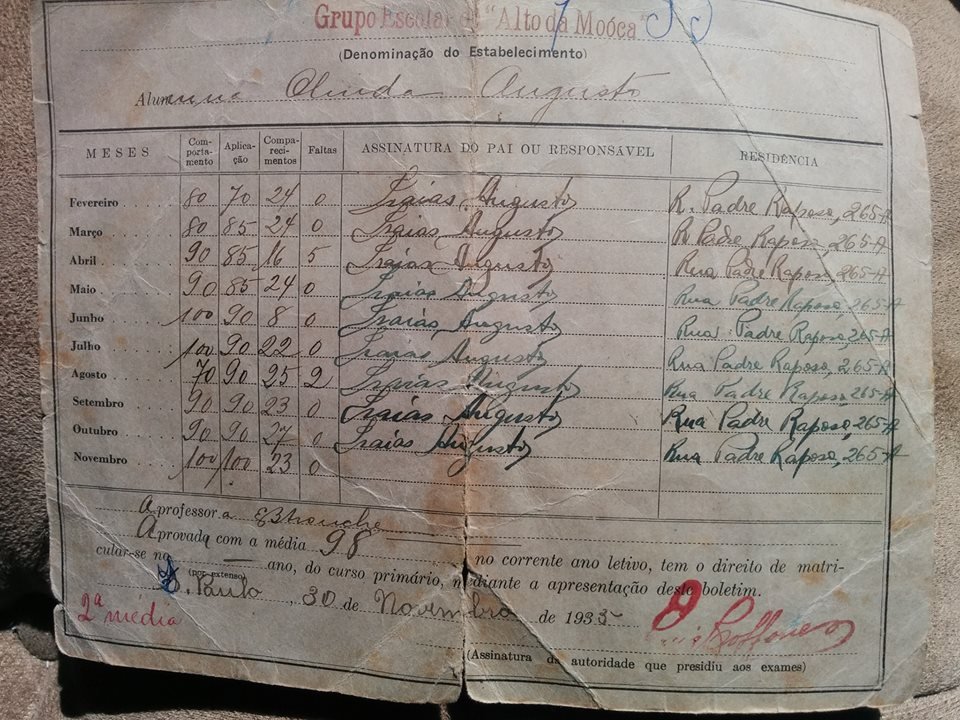 Grupo Escolar "Alto da Moóca"
(Denominação do Estabelecimento)
Alumna Olinda Augusto
MESES Comportamento Aplicação Comparecimentos Faltas ASSINATURA DO PAI OU RESPONSÁVEL RESIDÊNCIA
Fevereiro 80 70 24 0 Isaias Augusto R. Padre Raposo, 265-A
Março 80 85 24 0 Isaias Augusto R Padre Raposo, 265-A
Abril 90 85 16 5 Isaias Augusto Rua Padre Raposo 265-A
Maio 90 85 24 0 Isaias Augusto Rua Padre Raposo, 265-A
Junho 100 90 8 0 Isaias Augusto Rua Padre Raposo, 265-A
Julho 100 90 22 0 Isaias Augusto Rua Padre Raposo, 265-A
Agosto 70 90 25 2 Isaias Augusto Rua Padre Raposo, 265-A
Setembro 90 90 23 0 Isaias Augusto Rua Padre Raposo, 265-A
Outubro 90 90 27 0 Isaias Augusto Rua Padre Raposo, 265-A
Novembro 100 100 23 0
A professora
Aprovada com a média 98 no corrente ano letivo, tem o direito de matri-
cular-se no — ano, do curso primário, mediante a apresentação deste boletim.
(por extenso)
S. Paulo, 30 de Novembro de 193
2ª média
(Assinatura da autoridade que presidiu aos exames)